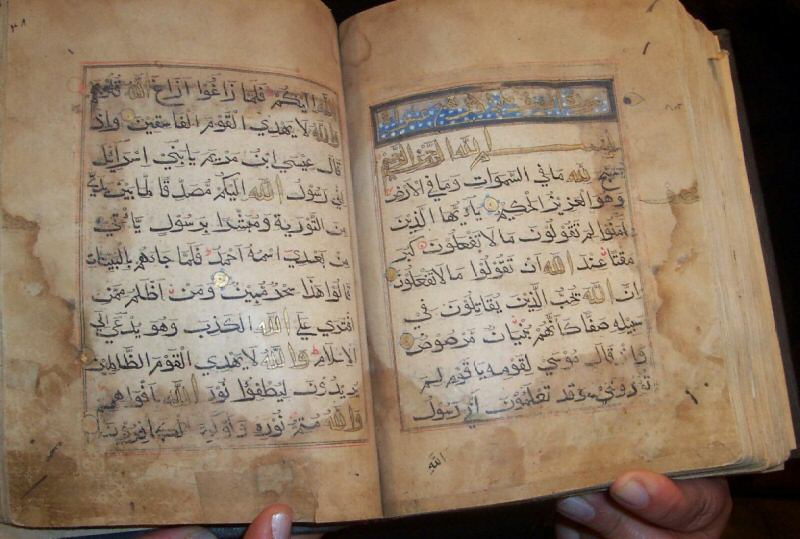 بسم الله الرحمن الرحيم
سبح لله ما في السموات وما في الارض
وهو العزيز الحكيم يا ايها الذين
آمنوا لم تقولون ما لا تفعلون كبر
مقتا عند الله ان تقولوا ما لا تفعلون
ان الله يحب الذين يقاتلون في
سبيله صفا كأنهم بنيان مرصوص
واذ قال موسى لقومه يا قوم لم
تؤذونني وقد تعلمون اني رسول
الله
الله اليكم فلما زاغوا ازاغ الله قلوبهم
والله لا يهدي القوم الفاسقين واذ
قال عيسى ابن مريم يا بني اسرائيل
اني رسول الله اليكم مصدقا لما بين يدي
من التورية ومبشرا برسول يأتي
من بعدي اسمه احمد فلما جاءهم بالبينات
قالوا هذا سحر مبين ومن اظلم ممن
افترى على الله الكذب وهو يدعى الى
الاسلام والله لا يهدي القوم الظالمين
يريدون ليطفؤا نور الله بافواههم
والله متم نوره ولو كره الكافرون